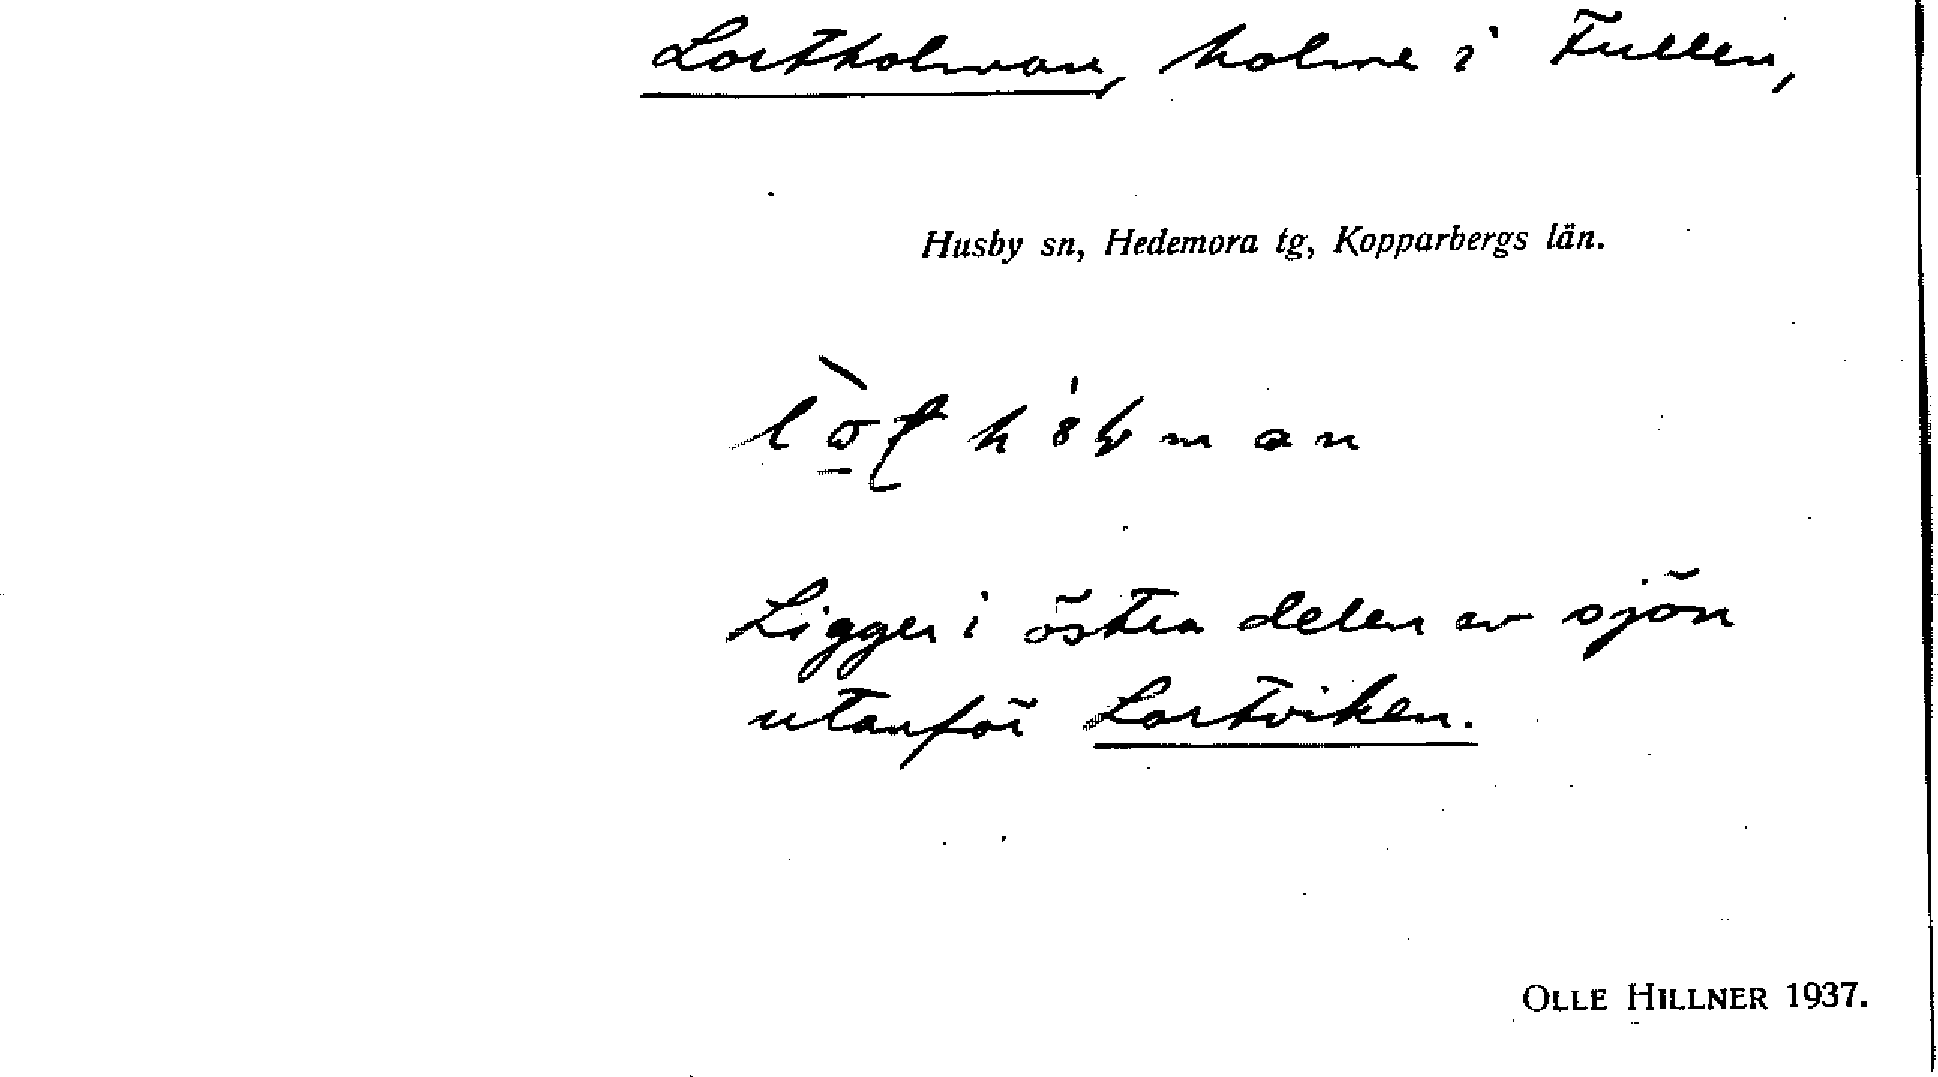 Lortholman, holme i Fullen,
Husby sn, Hedemora tg, Kopparbergs län.
Ligger i östra delen av sjön
utanför Lortviken.
OLLE HILLNER 1937.